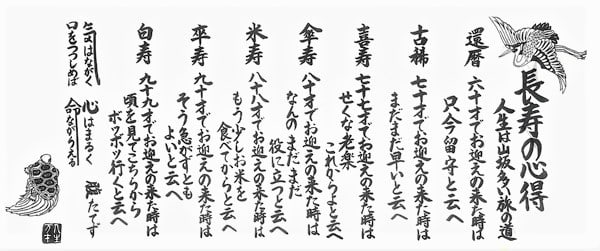 長寿の心得
人生は山坂多い旅の道
還暦
六十才でお迎えの来た時は
只今留守と云へ
古稀
七十才でお迎えの来た時は
まだまだ早いと云へ
喜寿
七十七才でお迎えの来た時は
せくな老楽
これからよと云へ
傘寿
八十才でお迎えの来た時は
なんのまだまだ
役に立つと云へ
米寿
八十八才でお迎えの来た時は
もう少しお米を
食べてからと云へ
卒寿
九十才でお迎えの来た時は
そう急がずとも
よいと云へ
白寿
九十九才でお迎えの来た時は
頃を見てこちらから
ボツボツ行くと云へ
気はながく
心はまるく
腹たてず
口をつつしめば
命ながらえる